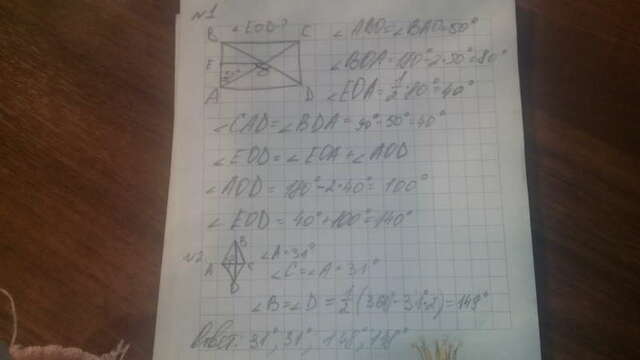 №1
B ∠EOD-? C ∠ABO=∠BAO=50°
E O ∠BOA=180°-2·50°=80°
50°
A D ∠EOA=1/2·80°=40°
∠CAD=∠BDA=90°-50°=40°
∠EOD=∠EOA+∠AOD
∠AOD=180°-2·40°=100°
∠EOD=40°+100°=140°
№2 B ∠A=31°
A C ∠C=∠A=31°
D
∠B=∠D=1/2(360°-31°·2)=149°
Ответ: 31°, 31°, 149°, 149°